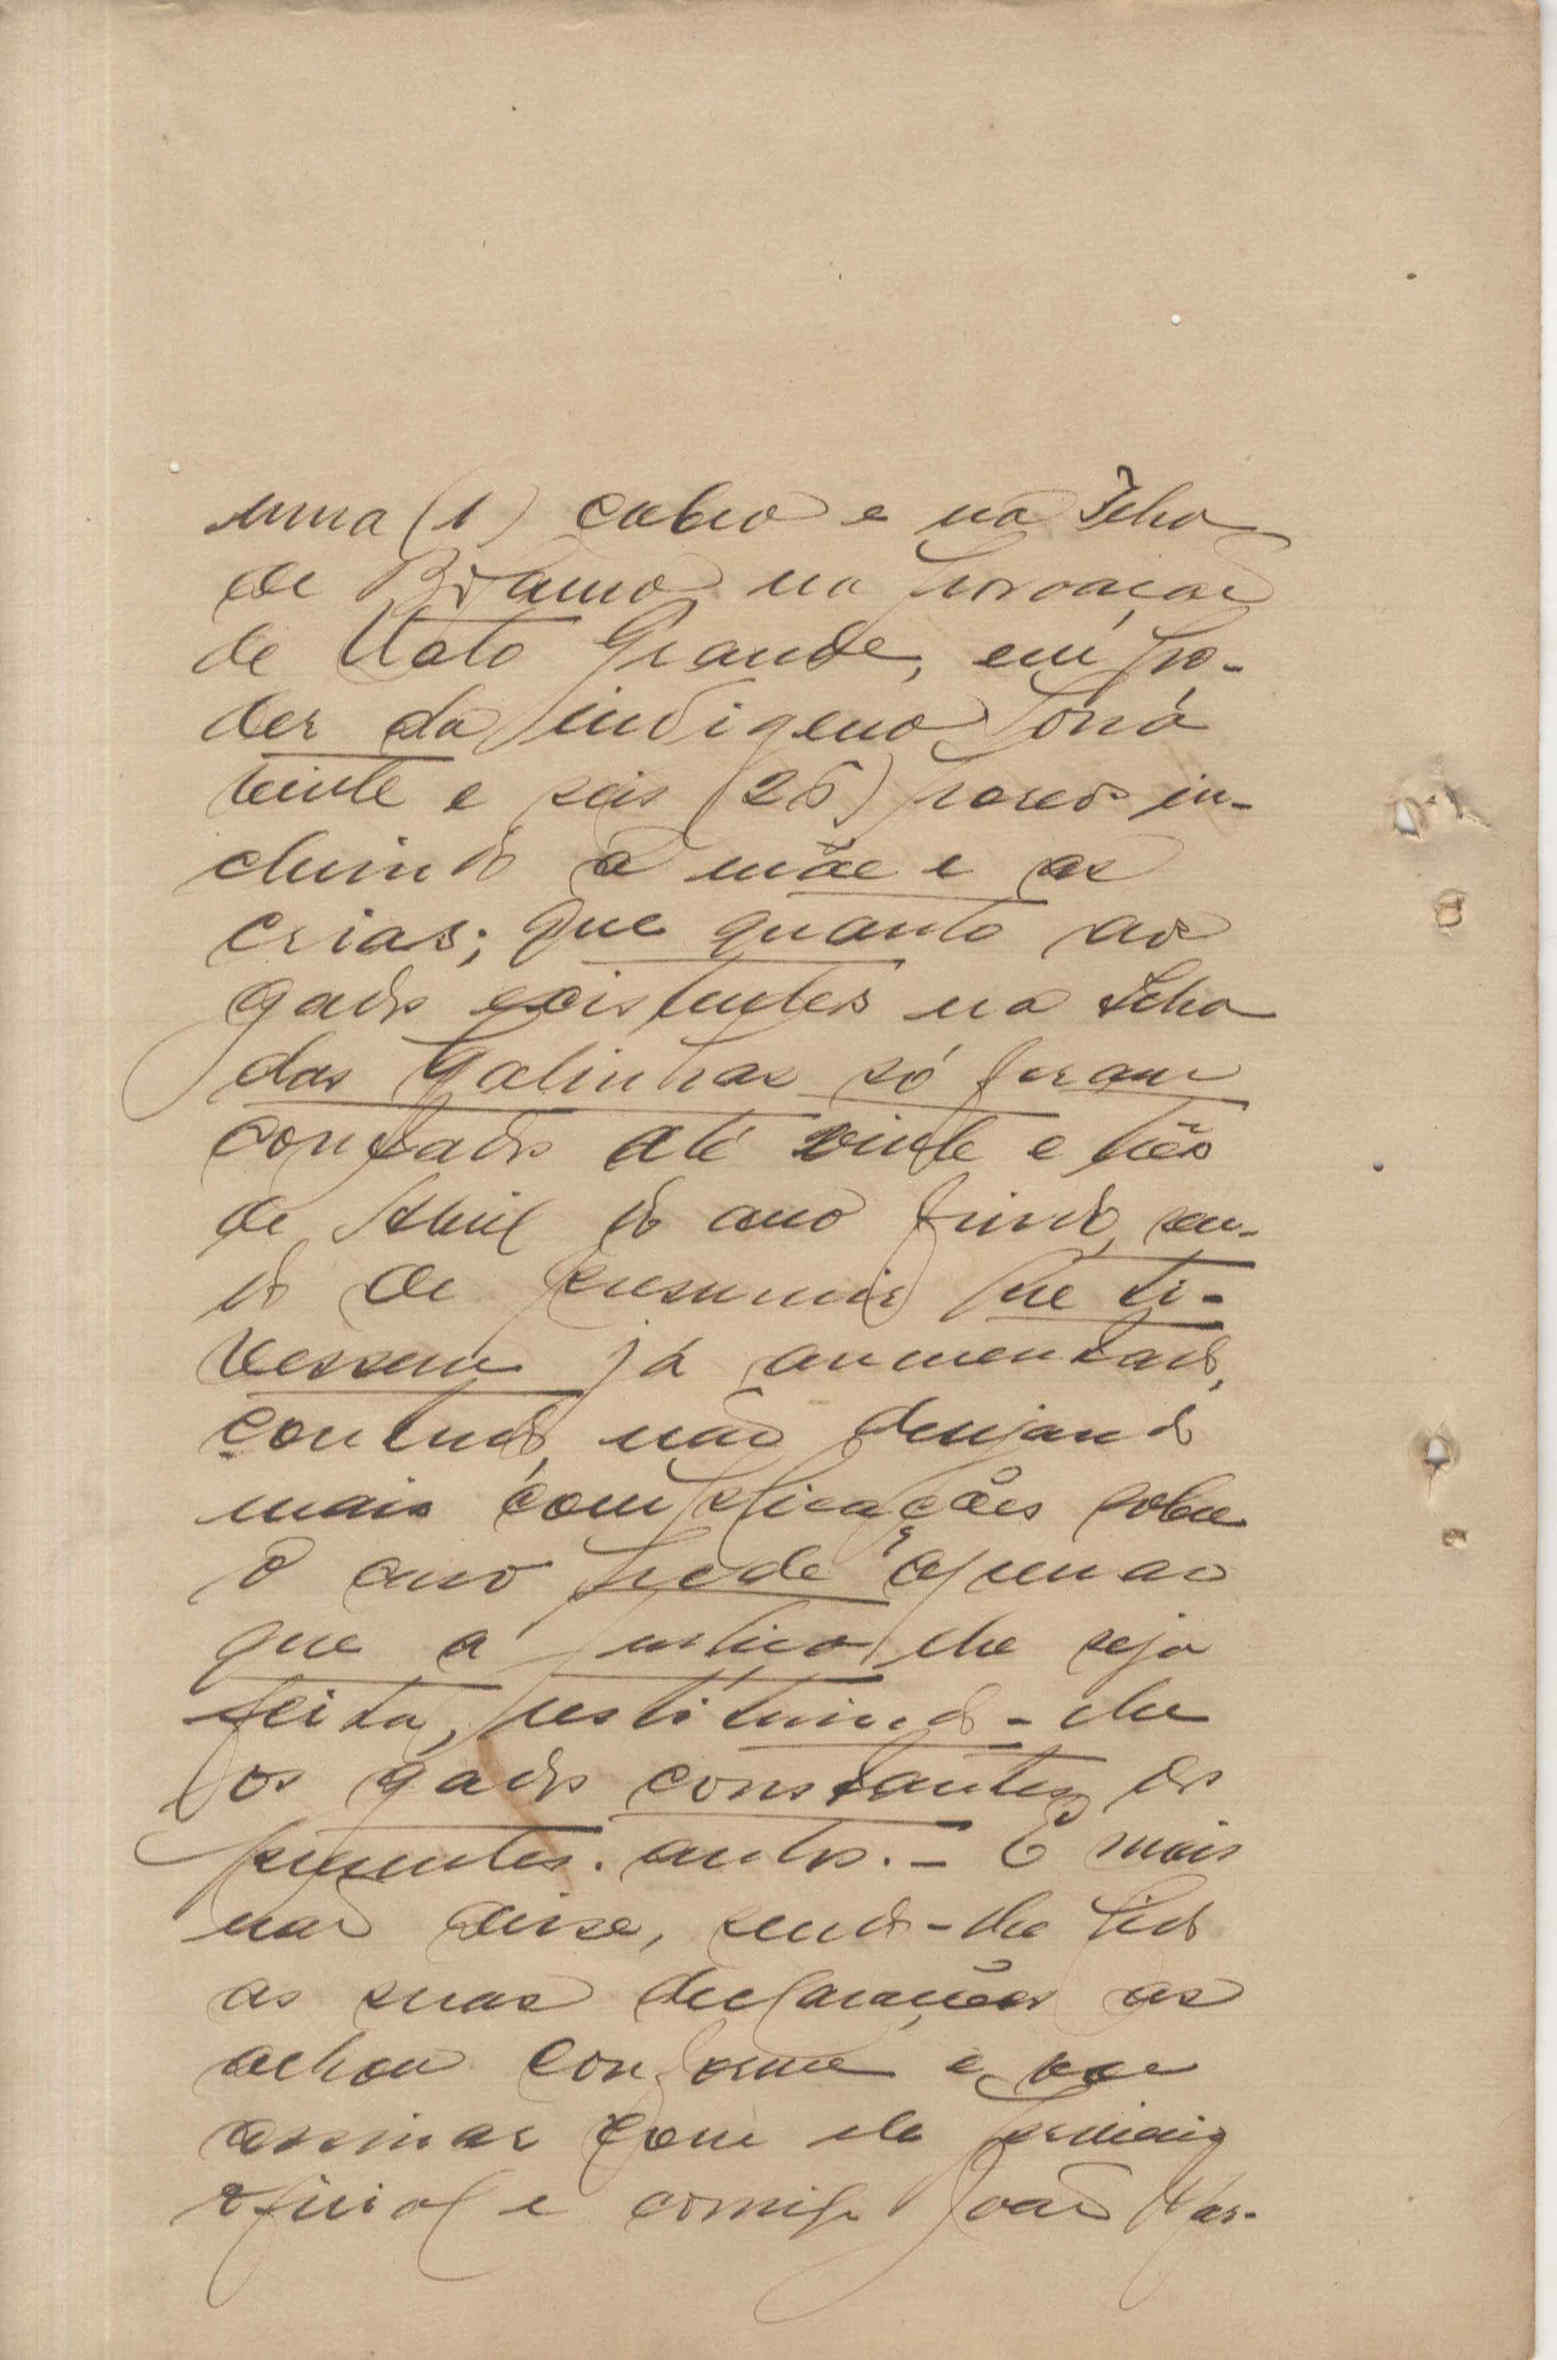 uma (1) cabra e na Ilha
de Bolama na povoação
de Mato Grande, em po-
der da indigena Loná
vinte e seis (26) porcos in-
cluindo a mãe e as
crias; que quanto aos
gados existentes na Ilha
das Galinhas só foram
contados até vinte e três
de Abril do ano findo, sen-
do de presumir que ti-
vessem já aumentado,
contudo, não desejando
mais complicações sobre
o caso pede apenas
que a justiça lhe seja
feita, restituindo-lhe
os gados constantes dos
presentes autos. - E mais
não disse, sendo-lhe lido
as suas declarações as
achou conforme e vae
assinar com ele
oficial e comigo João Mar-